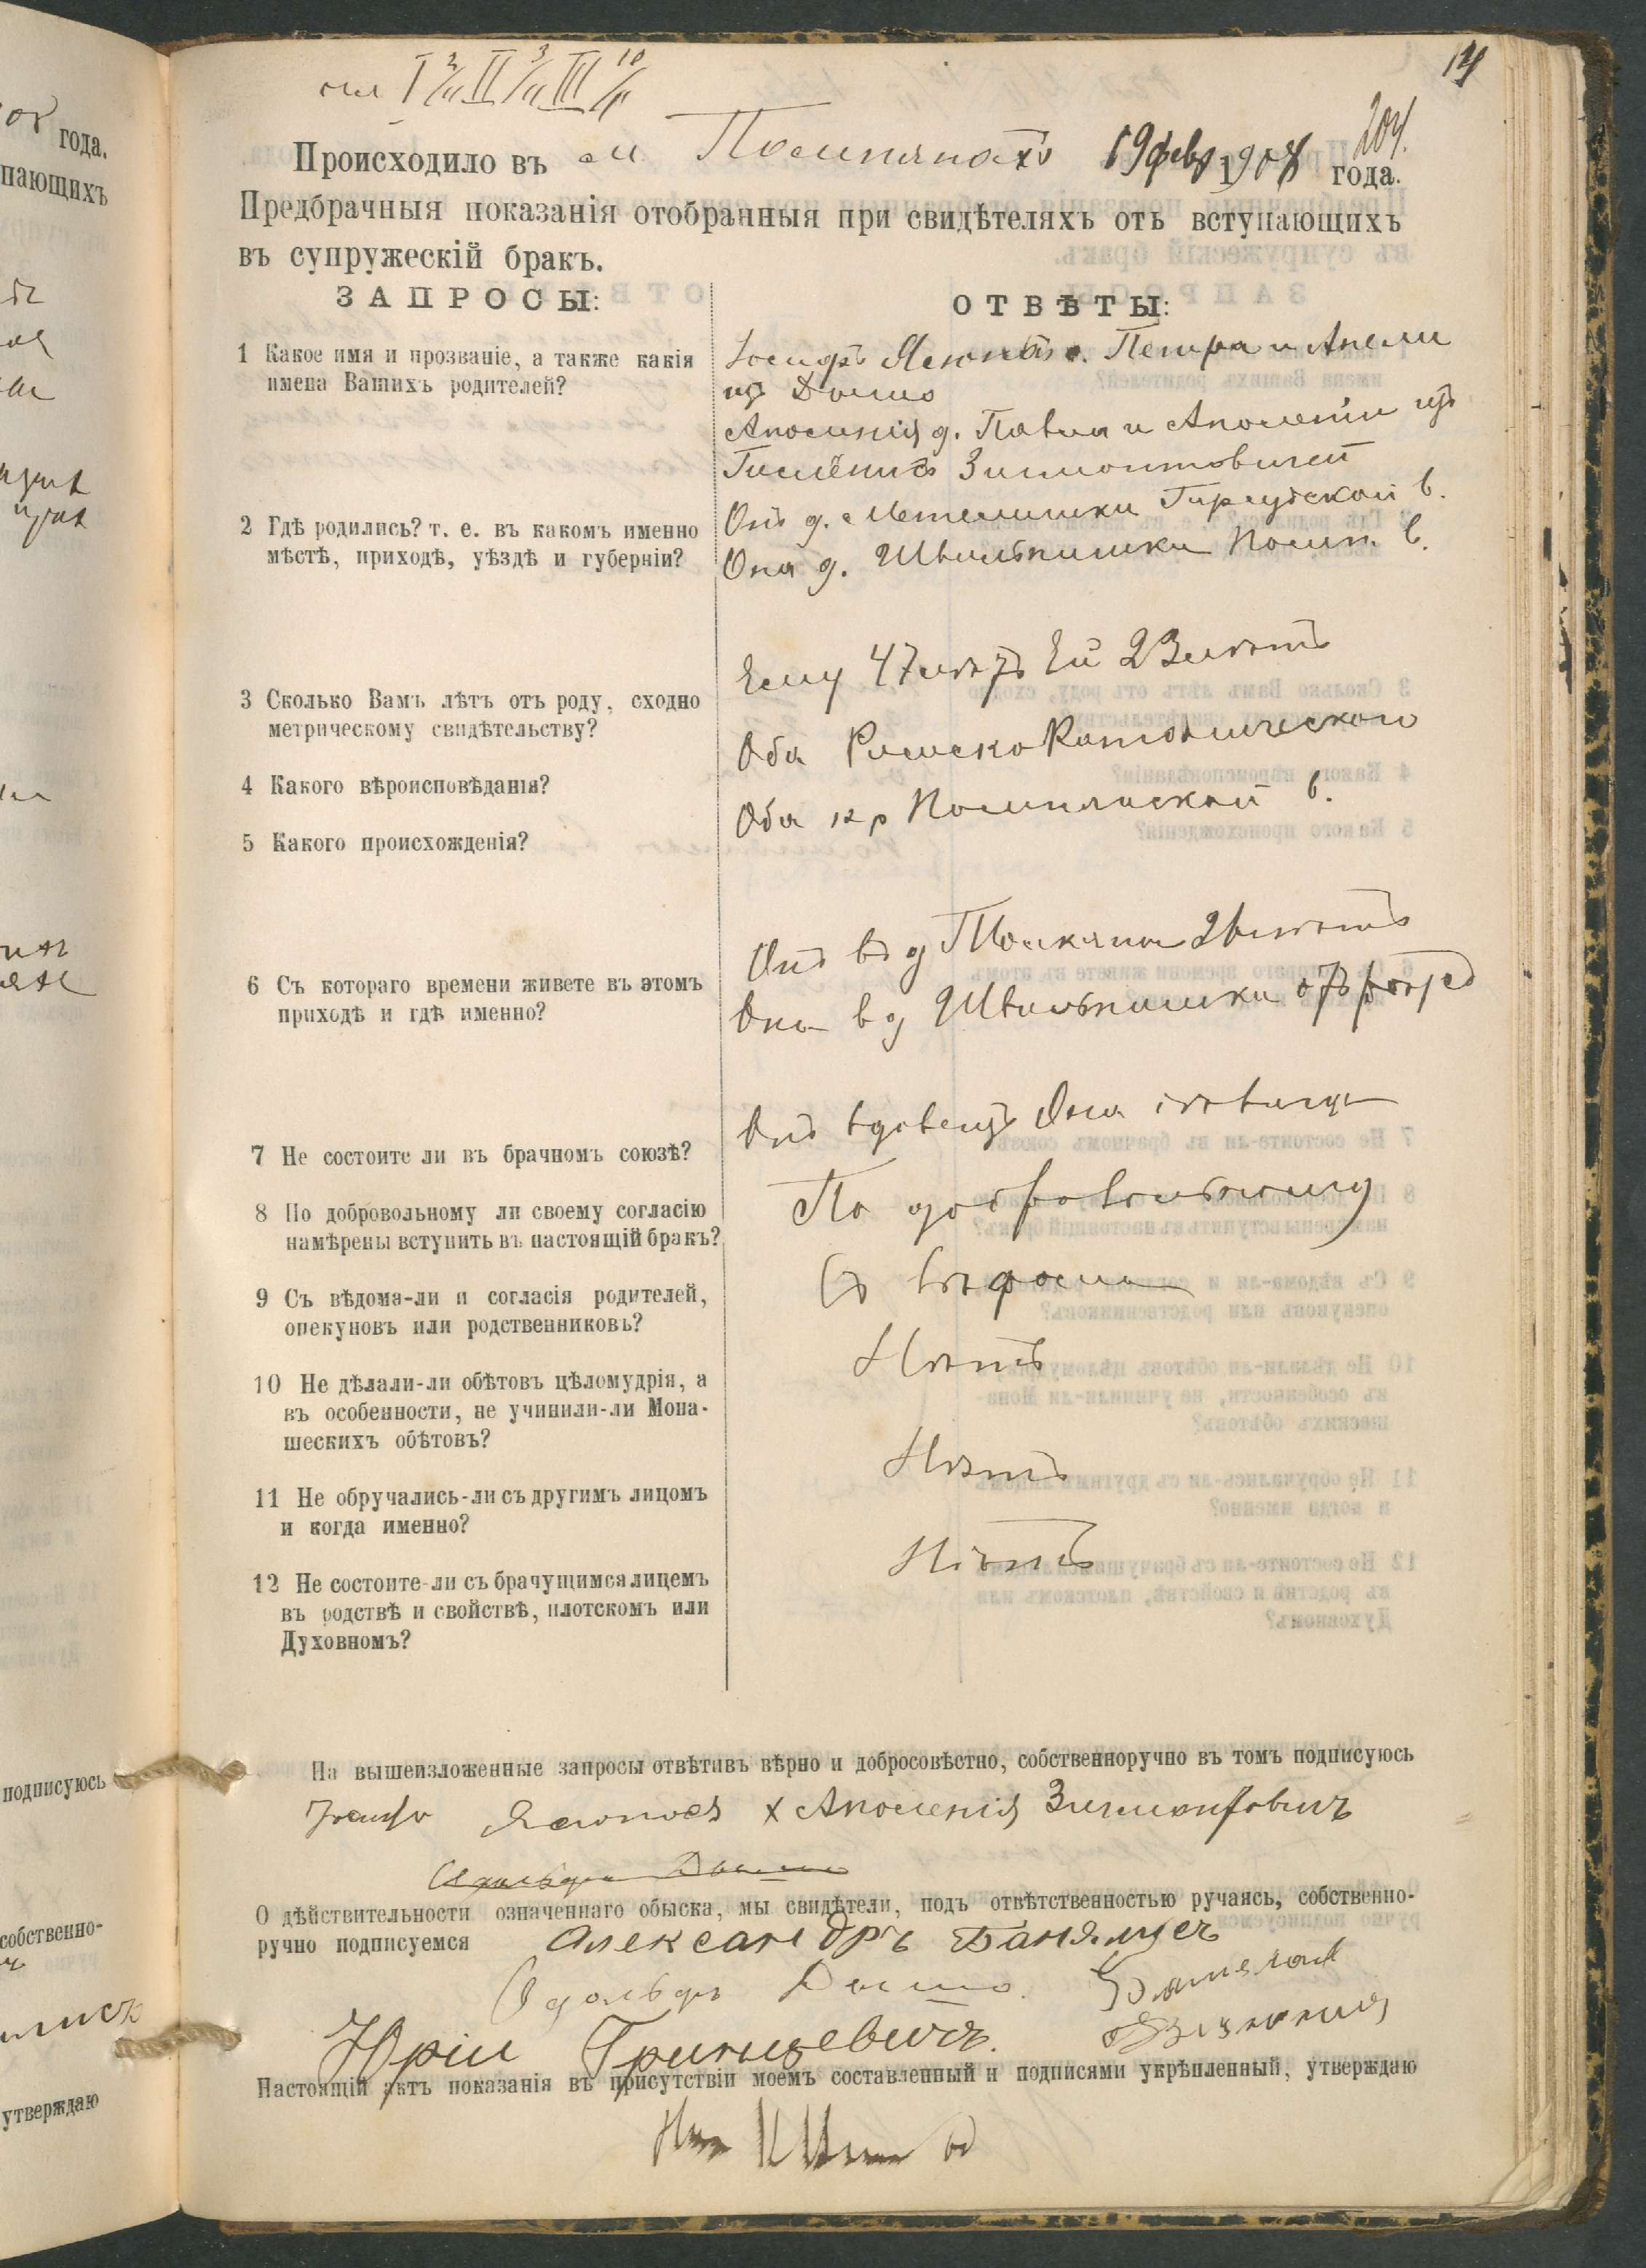 14
204.
I 3/II II 3/II III 10/II
Происходило въ м. 19 фев 1908 года.
Предбрачныя показанія отобранныя при свидѣтеляхъ отъ вступающихъ
въ супружескій бракъ.
ЗАПРОСЫ:
1 Какое имя и прозваніе, а также какія
имена Вашихъ родителей?
2 Гдѣ родились? т. е. въ какомъ именно
мѣстѣ, приходѣ, уѣздѣ и губерніи?
3 Сколько Вамъ лѣтъ отъ роду, сходно
метрическому свидѣтельству?
4 Какого вѣроисповѣданія?
5 Какого происхожденія?
6 Съ котораго времени живете въ этомъ
приходѣ и гдѣ именно?
7 Не состоите ли въ брачномъ союзѣ?
8 По добровольному ли своему согласію
намѣрены вступить въ настоящій бракъ?
9 Съ вѣдома-ли и согласія родителей,
опекуновъ или родственниковъ?
10 Не дѣлали-ли обѣтовъ цѣломудрія, а
въ особенности, не учинили-ли Мона-
шескихъ обѣтовъ?
11 Не обручались-ли съ другимъ лицомъ
и когда именно?
12 Не состоите-ли съ брачущимся лицемъ
въ родствѣ и свойствѣ, плотскомъ или
Духовномъ?
ОТВѢТЫ:
Іосифъ с. Петра и Анели
изъ Дымшо
Аполонія д. Павла и Аполоніи изъ
Зимонтовичей
Онъ д. в.
Она д. Швильпишки в.
Ему 47 лѣтъ Ей 23 лѣтъ
Оба Римско Католическаго
Оба кр в.
Онъ въ д лѣтъ
Она в д Швильпишки отъ рожд
Онъ вдовецъ Она дѣвица
По добровольному
Съ вѣдома
Нѣтъ
Нѣтъ
Нѣтъ
На вышеизложенные запросы отвѣтивъ вѣрно и добросовѣстно, собственноручно въ томъ подписуюсь
х Аполенія Зимонтовичъ
О дѣйствительности означеннаго обыска, мы свидѣтели, подъ отвѣтственностью ручаясь, собственно-
ручно подписуемся Александръ
Адольфъ
Юрій Гринцевичъ.
Настоящій актъ показанія въ присутствіи моемъ составленный и подписями укрѣпленный, утверждаю
года.
пающихъ
подписуюсь
собственно-
утверждаю